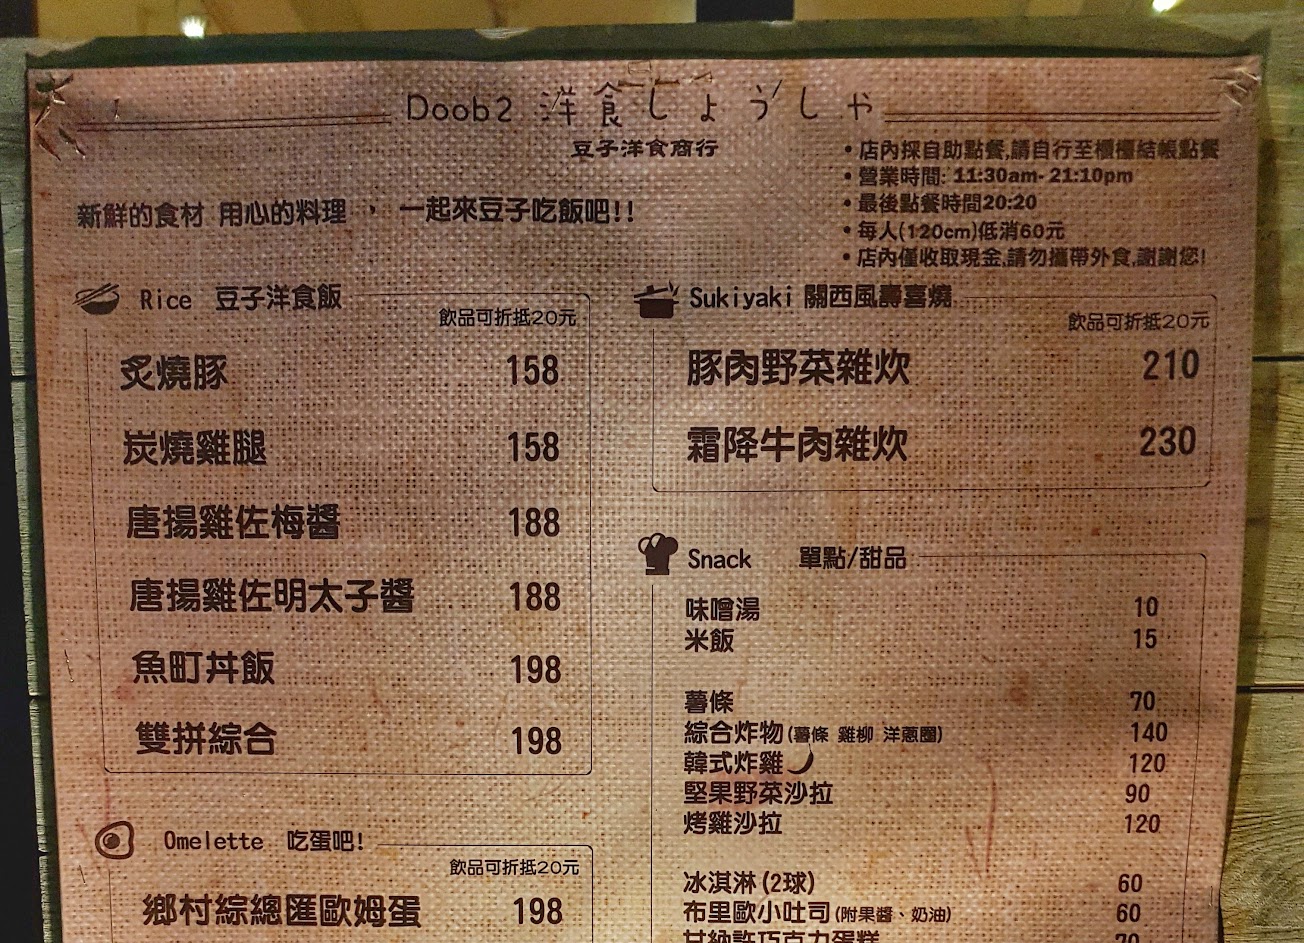 Doob2 洋食しょうしゃ
豆子洋食商行
• 店內採自助點餐,請自行至櫃檯結帳點餐
• 營業時間: 11:30am- 21:10pm
• 最後點餐時間20:20
• 每人(120cm)低消60元
• 店內僅收取現金,請勿攜帶外食,謝謝您!
新鮮的食材 用心的料理 , 一起來豆子吃飯吧!!
Rice 豆子洋食飯
飲品可折抵20元
炙燒豚 158
炭燒雞腿 158
唐揚雞佐梅醬 188
唐揚雞佐明太子醬 188
魚町丼飯 198
雙拼綜合 198
Omelette 吃蛋吧!
飲品可折抵20元
鄉村綜總匯歐姆蛋 198
Sukiyaki 關西風壽喜燒
飲品可折抵20元
豚肉野菜雜炊 210
霜降牛肉雜炊 230
Snack 單點/甜品
味噌湯 10
米飯 15
薯條 70
綜合炸物(薯條 雞柳 洋蔥圈) 140
韓式炸雞 120
堅果野菜沙拉 90
烤雞沙拉 120
冰淇淋(2球) 60
布里歐小吐司(附果醬、奶油) 60
甘納許巧克力蛋糕 70